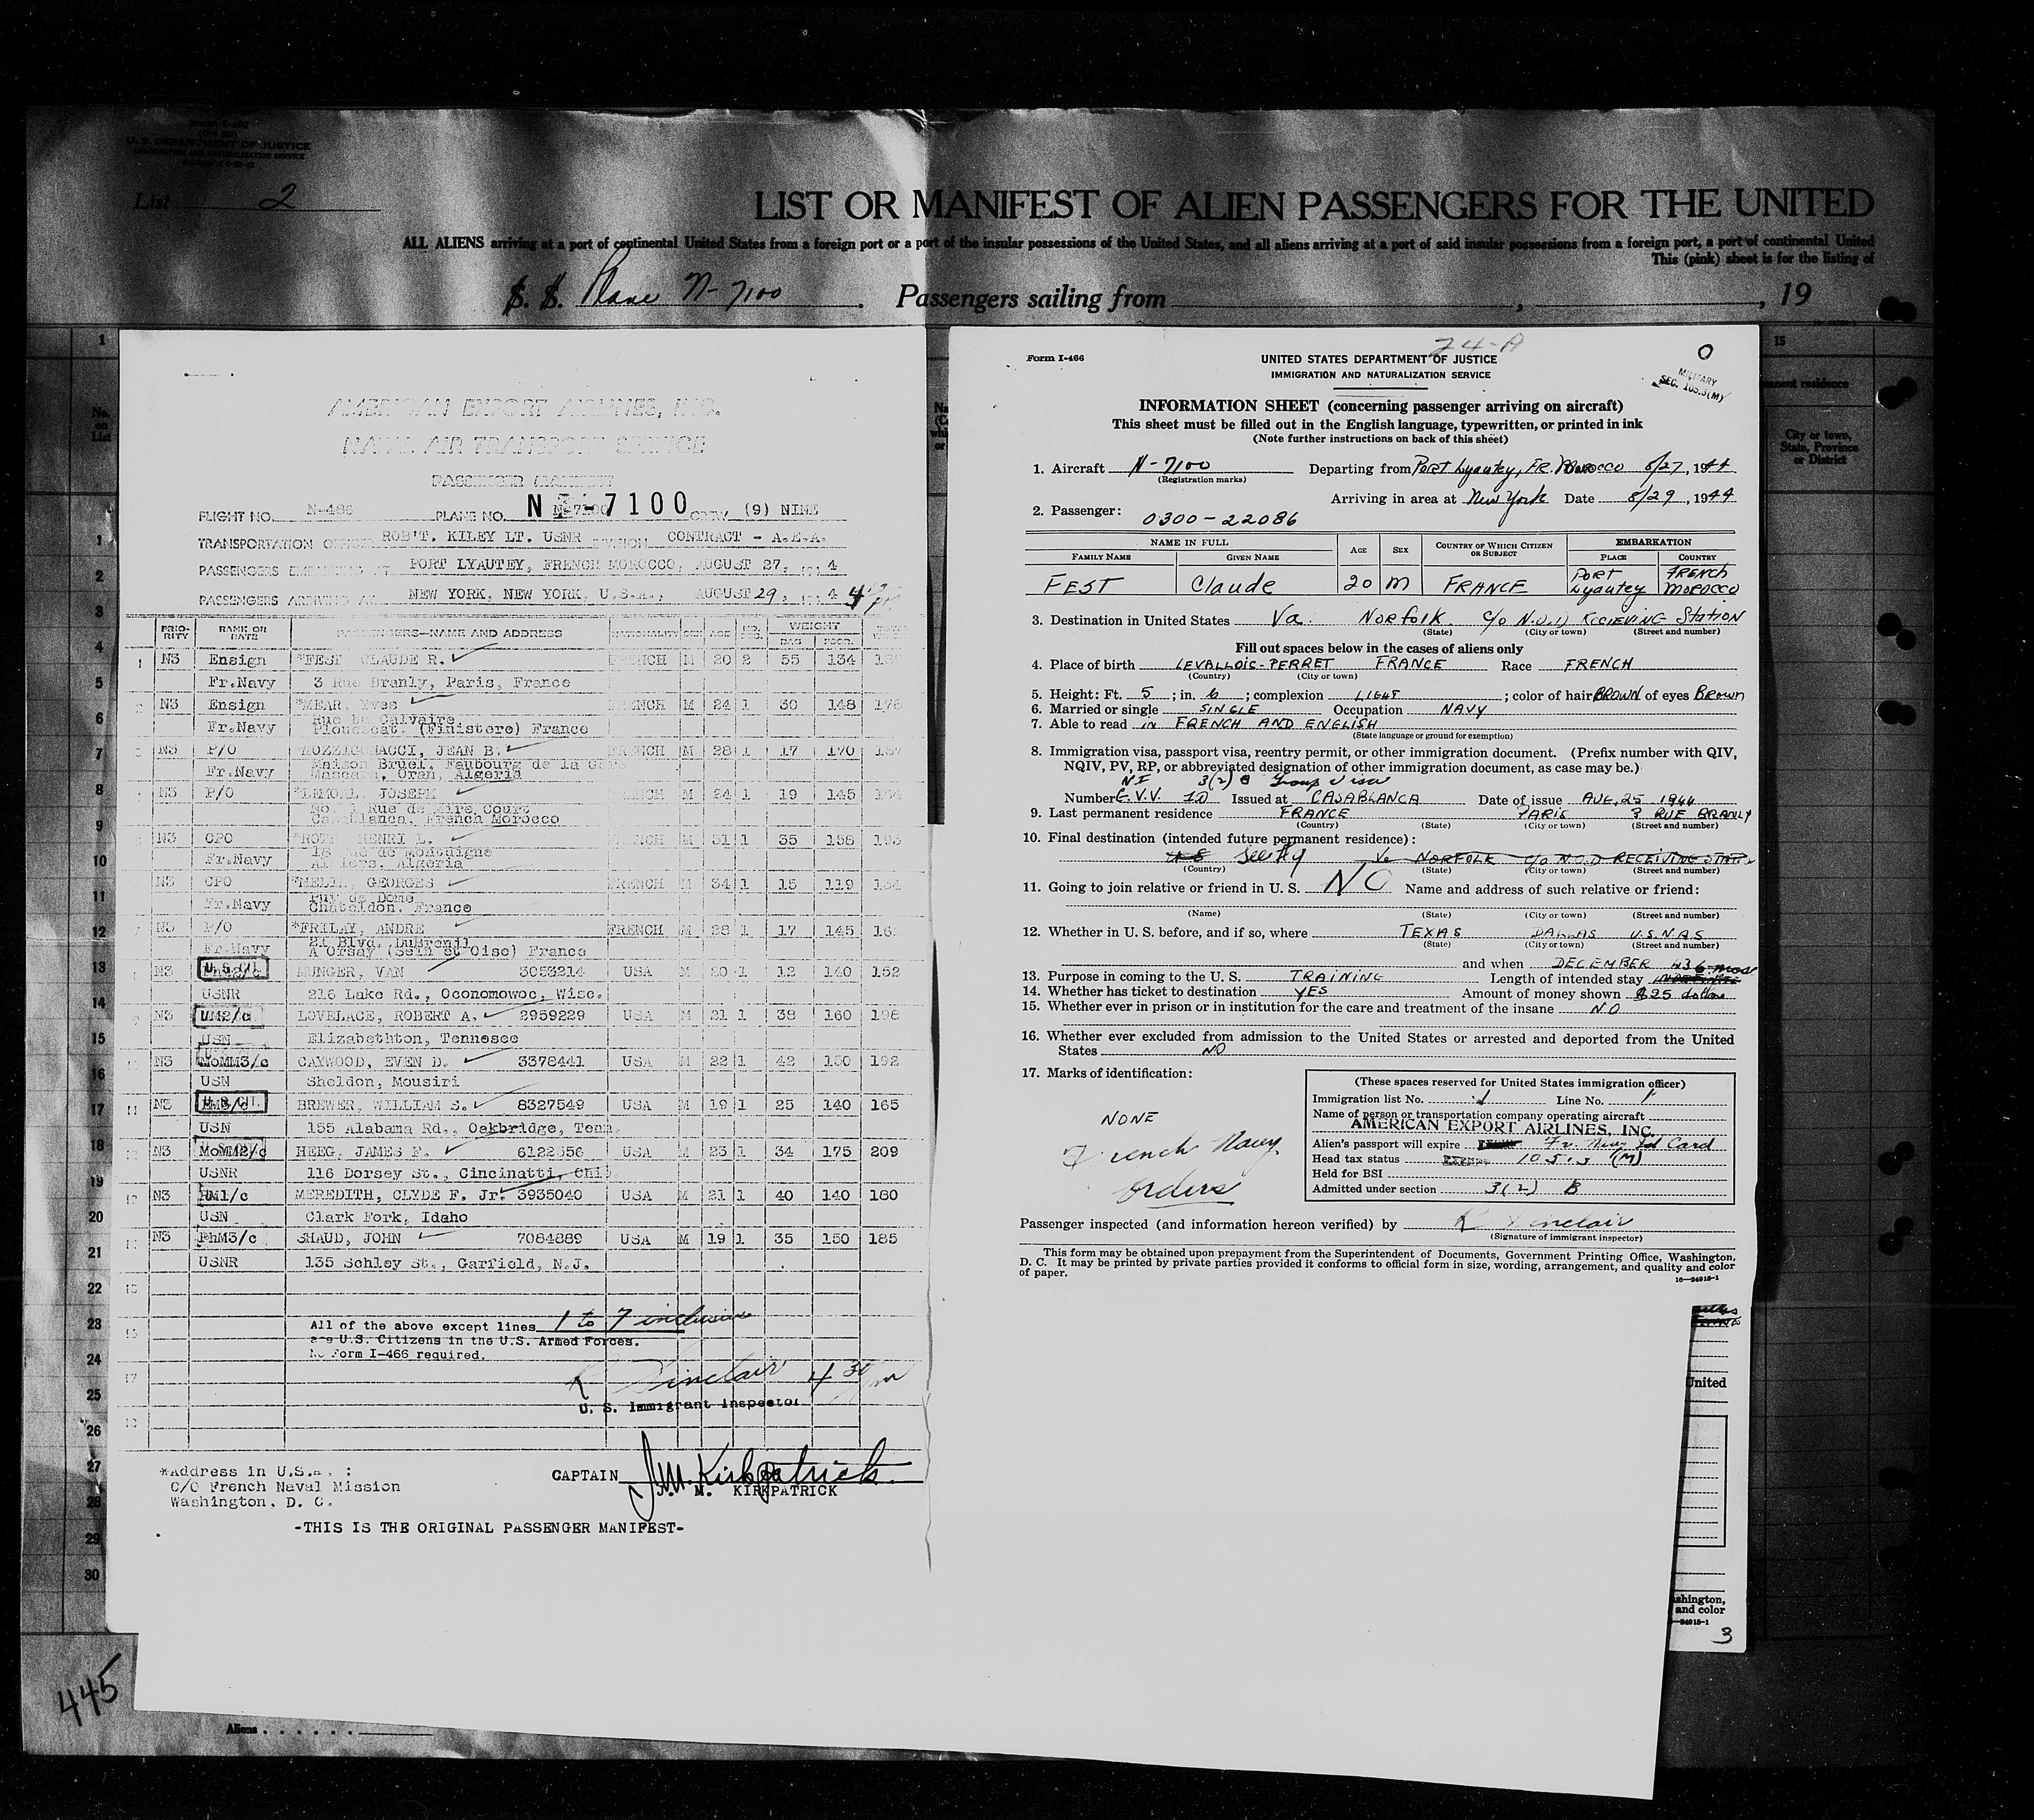 U. S. DEPARTMENT OF JUSTICE
IMMIGRATION AND NATURALIZATION SERVICE
List 2
LIST OR MANIFEST OF ALIEN PASSENGERS FOR THE UNITED
ALL ALIENS arriving at a port of continental United States from a foreign port or a port of the insular possessions of the United States, and all aliens arriving at a port of said insular possessions from a foreign port, a port of continental United
This (pink) sheet is for the listing of
S. S. Plane N-7100. Passengers sailing from , , 19
AMERICAN EXPORT AIRLINES, INC.
NAVAL AIR TRANSPORT SERVICE
PASSENGER MANIFEST
FLIGHT NO. N-486 PLANE NO. N-7100 CREW (9) NINE
TRANSPORTATION OFFICER ROB'T. KILEY LT. USNR DIVISION CONTRACT - A.E.A.
PASSENGERS EMBARKING AT PORT LYAUTEY, FRENCH MOROCCO, AUGUST 27, 4
PASSENGERS ARRIVING AT NEW YORK, NEW YORK, U.S.A., AUGUST 29, 4 4
PRIORITY RANK OR RATE PASSENGERS—NAME AND ADDRESS NATIONALITY SEX AGE WEIGHT
1 N3 Ensign *FEST CLAUDE R. FRENCH M 20 2 55 134
Fr.Navy 3 Rue Branly, Paris, France
2 N3 Ensign *MEAR, Yves FRENCH M 24 1 30 148 178
Fr.Navy Rue Calvaire,
Plouescat. (Finistere) France
N3 P/O JEAN B. FRENCH M 28 1 17 170 187
Fr.Navy Maison Bruel, Faubourg de la
Mascara, Oran, Algeria
N3 P/O JOSEPH FRENCH M 24 1 19 145 164
No. 1 Rue de Court
Casablanca, French Morocco
N3 CPO HENRI L. FRENCH M 31 1 35 158 193
Fr.Navy Algeria
N3 CPO GEORGES FRENCH M 34 1 15 119 134
Fr.Navy Puy de Dome
Chateldon, France
N3 P/O *FRILAY, ANDRE FRENCH M 28 1 17 145
Fr.Navy 21 Blvd. DuBreuil
A Orsay (Sein et Oise) France
N3 U.S. CIT. MUNGER, VAN 3053214 USA M 20 1 12 140 152
USNR 216 Lake Rd., Oconomowoc, Wisc.
N3 UM2/c LOVELACE, ROBERT A. 2959229 USA M 21 1 38 160 198
USN Elizabethton, Tennesee
N3 MoMM3/c CAYWOOD, EVEN D. 3378441 USA M 22 1 42 150 192
USN Sheldon, Mousiri
11 N3 U.S. CIT. BREWER, WILLIAM S. 8327549 USA M 19 1 25 140 165
USN 155 Alabama Rd., Oakbridge, Tenn.
N3 MoMM2/c HEEG, JAMES F. 6122356 USA M 23 1 34 175 209
USNR 116 Dorsey St., Cincinatti,
N3 RM1/c MEREDITH, CLYDE F. Jr. 3935040 USA M 21 1 40 140 180
USN Clark Fork, Idaho
N3 PhM3/c SHAUD, JOHN 7084889 USA M 19 1 35 150 185
USNR 135 Schley St., Garfield, N.J.
All of the above except lines 1 to 7 inclusive
are U.S. Citizens in the U.S. Armed Forces.
No Form I-466 required.
R Sinclair 4 30 pm
U. S. Immigrant Inspector
*Address in U.S.A. :
C/O French Naval Mission
Washington, D. C.
CAPTAIN J.M. Kirkpatrick
J. M. KIRKPATRICK
-THIS IS THE ORIGINAL PASSENGER MANIFEST-
445
Aliens . . . . . .
24-A
0
MILITARY
SEC. 105.3(M)
Form I-466
UNITED STATES DEPARTMENT OF JUSTICE
IMMIGRATION AND NATURALIZATION SERVICE
INFORMATION SHEET (concerning passenger arriving on aircraft)
This sheet must be filled out in the English language, typewritten, or printed in ink
(Note further instructions on back of this sheet)
1. Aircraft N-7100 Departing from Port Lyautey, FR. Morocco 8/27, 1944
(Registration marks)
Arriving in area at New York Date 8/29, 1944
2. Passenger: 0300-22086
NAME IN FULL AGE SEX COUNTRY OF WHICH CITIZEN OR SUBJECT EMBARKATION
FAMILY NAME GIVEN NAME PLACE COUNTRY
FEST Claude 20 M FRANCE PORT Lyautey FRENCH MOROCCO
3. Destination in United States Va. Norfolk c/o N.O.D RECIEVING Station
(State) (City or town) (Street and number)
Fill out spaces below in the cases of aliens only
4. Place of birth LEVALLOIC-PERRET FRANCE Race FRENCH
(Country) (City or town)
5. Height: Ft. 5; in. 6; complexion LIGHT; color of hair BROWN of eyes BROWN
6. Married or single SINGLE Occupation NAVY
7. Able to read in FRENCH AND ENGLISH
(State language or ground for exemption)
8. Immigration visa, passport visa, reentry permit, or other immigration document. (Prefix number with QIV,
NQIV, PV, RP, or abbreviated designation of other immigration document, as case may be.)
NI 3(2) B Group visa
Number G.V.V. 10 Issued at CASABLANCA Date of issue AUG, 25 1944
9. Last permanent residence FRANCE PARIS 3 RUE BRANLY
(Country) (State) (City or town) (Street and number)
10. Final destination (intended future permanent residence):
Va NORFOLK c/o N.O.D RECEIVING STATION
(Country) (State) (City or town) (Street and number)
11. Going to join relative or friend in U. S. NO Name and address of such relative or friend:
(Name) (State) (City or town) (Street and number)
12. Whether in U. S. before, and if so, where TEXAS DALLAS U.S.N.A.S
(State) (City or town) (Street and number)
and when DECEMBER 43
13. Purpose in coming to the U. S. TRAINING Length of intended stay 6 mos
14. Whether has ticket to destination YES Amount of money shown $25 dollars
15. Whether ever in prison or in institution for the care and treatment of the insane NO
16. Whether ever excluded from admission to the United States or arrested and deported from the United
States NO
17. Marks of identification:
NONE
French Navy
orders
(These spaces reserved for United States immigration officer)
Immigration list No. 1 Line No. 1
Name of person or transportation company operating aircraft
AMERICAN EXPORT AIRLINES, INC.
Alien's passport will expire Fr. Navy Id Card
Head tax status EXEMPT 105.3 (M)
Held for BSI
Admitted under section 3(2) B
Passenger inspected (and information hereon verified) by R Sinclair
(Signature of immigrant inspector)
This form may be obtained upon prepayment from the Superintendent of Documents, Government Printing Office, Washington,
D. C. It may be printed by private parties provided it conforms to official form in size, wording, arrangement, and quality and color
of paper.
16—24918-1
15
City or town,
State, Province
or District
United
shington,
and color
24918-1
3